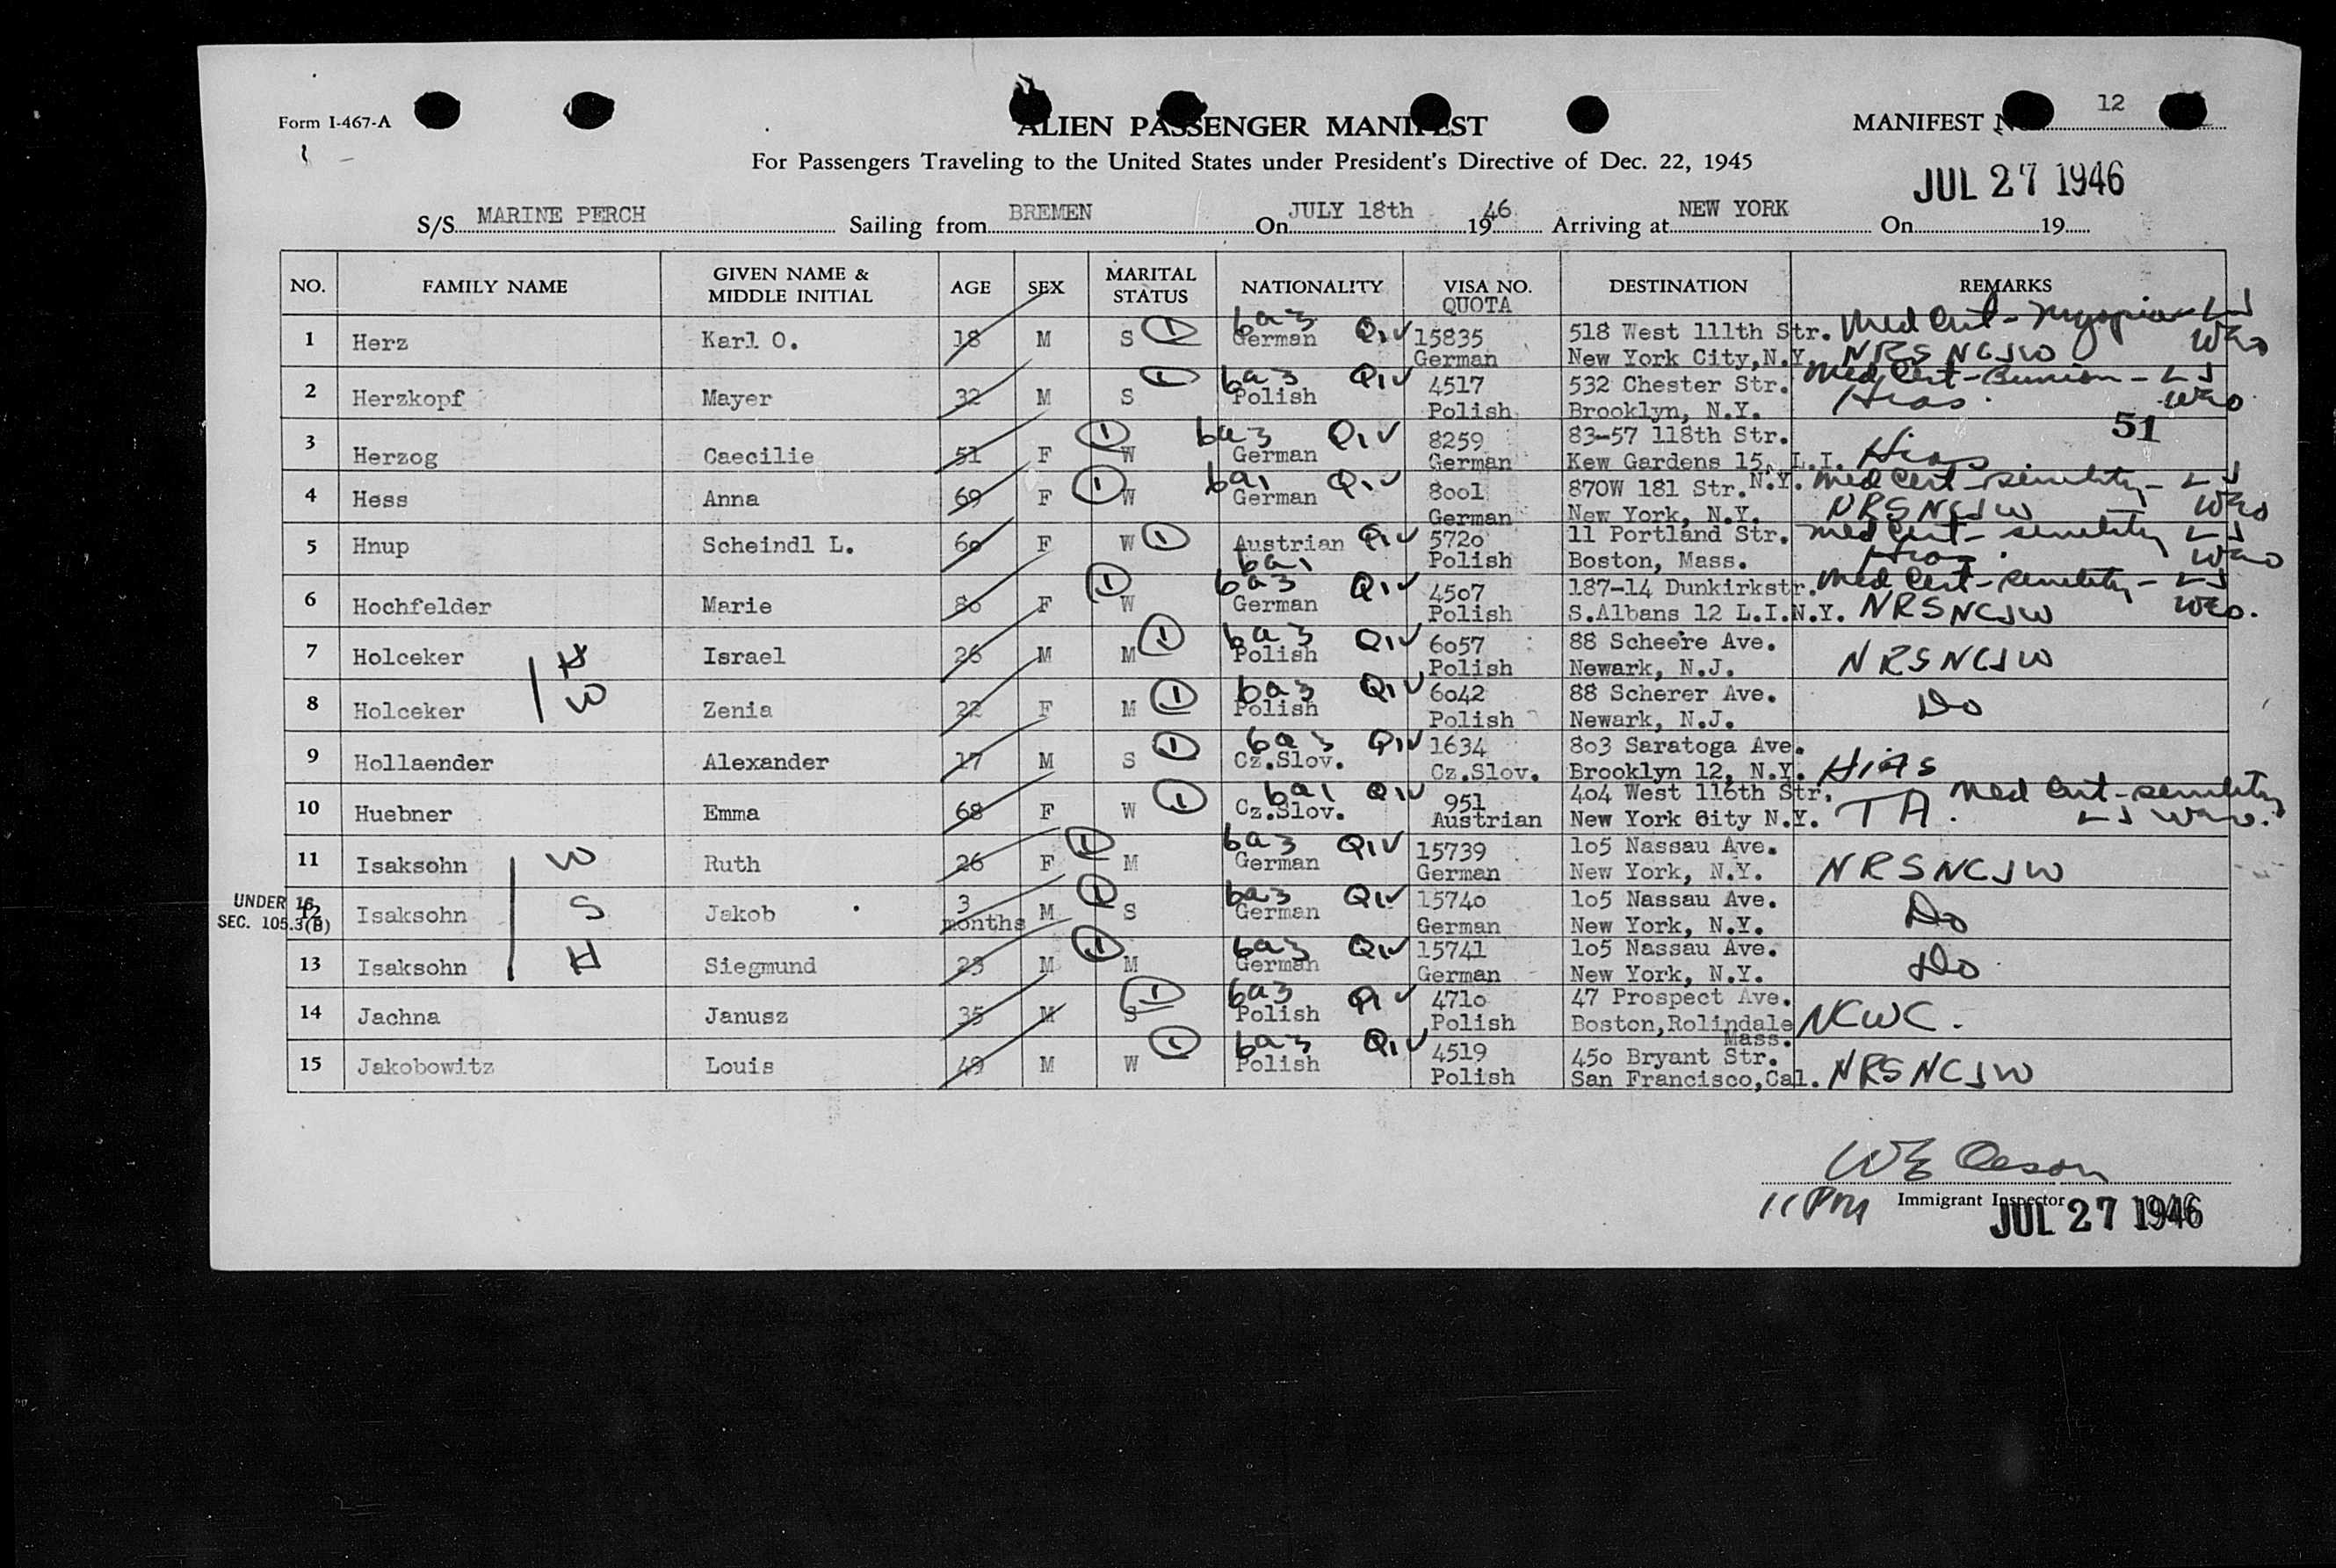 Form I-467-A
ALIEN PASSENGER MANIFEST
MANIFEST No. 12
For Passengers Traveling to the United States under President's Directive of Dec. 22, 1945
JUL 27 1946
S/S MARINE PERCH Sailing from BREMEN On JULY 18th 1946 Arriving at NEW YORK On 19
NO. FAMILY NAME GIVEN NAME & MIDDLE INITIAL AGE SEX MARITAL STATUS NATIONALITY VISA NO. QUOTA DESTINATION REMARKS
1 Herz Karl O. 18 M S 1 6a3 German Q1V 15835 518 West 111th Str. Med Cert - Myopia - LJ
German New York City,N.Y. NRSNCJW WEO
2 Herzkopf Mayer 32 M S 1 6a3 Polish Q1V 4517 532 Chester Str. Med Cert - Bunion - LJ
Polish Brooklyn, N.Y. Hias. WEO
3 Herzog Caecilie 51 F 1 W 6a3 German Q1V 8259 83-57 118th Str. 51
German Kew Gardens 15, L.I. N.Y. Hias
4 Hess Anna 69 F 1 W 6a1 German Q1V 8001 870W 181 Str. Med Cert - senility - LJ
German New York, N.Y. NRSNCJW WEO
5 Hnup Scheindl L. 60 F W 1 Austrian 6a1 Q1V 5720 11 Portland Str. Med Cert - senility LJ
Polish Boston, Mass. Hias. WEO
6 Hochfelder Marie 80 F 1 W 6a3 German Q1V 4507 187-14 Dunkirkstr. Med Cert - senility - LJ
Polish S.Albans 12 L.I.N.Y. NRSNCJW WEO.
7 Holceker H Israel 26 M M 1 6a3 Polish Q1V 6057 88 Scheere Ave.
Polish Newark, N.J. NRSNCJW
8 Holceker W Zenia 22 F M 1 6a3 Polish Q1V 6042 88 Scherer Ave.
Polish Newark, N.J. Do
9 Hollaender Alexander 17 M S 1 6a3 Cz.Slov. Q1V 1634 803 Saratoga Ave.
Cz.Slov. Brooklyn 12, N.Y. HIAS
10 Huebner Emma 68 F W 1 6a1 Cz.Slov. Q1V 951 404 West 116th Str. Med Cert - senility
Austrian New York City N.Y. TA. LJ WEO.
11 Isaksohn W Ruth 26 F 1 M 6a3 German Q1V 15739 105 Nassau Ave.
German New York, N.Y. NRSNCJW
UNDER 16
SEC. 105.3(B)
12 Isaksohn S Jakob 3 months M 1 S 6a3 German Q1V 15740 105 Nassau Ave.
German New York, N.Y. Do
13 Isaksohn H Siegmund 23 M 1 M 6a3 German Q1V 15741 105 Nassau Ave.
German New York, N.Y. Do
14 Jachna Janusz 35 M 1 S 6a3 Polish Q1V 4710 47 Prospect Ave.
Polish Boston,Rolindale Mass. NCWC.
15 Jakobowitz Louis 49 M W 1 6a3 Polish Q1V 4519 450 Bryant Str.
Polish San Francisco,Cal. NRSNCJW
11 PM Immigrant Inspector
JUL 27 1946